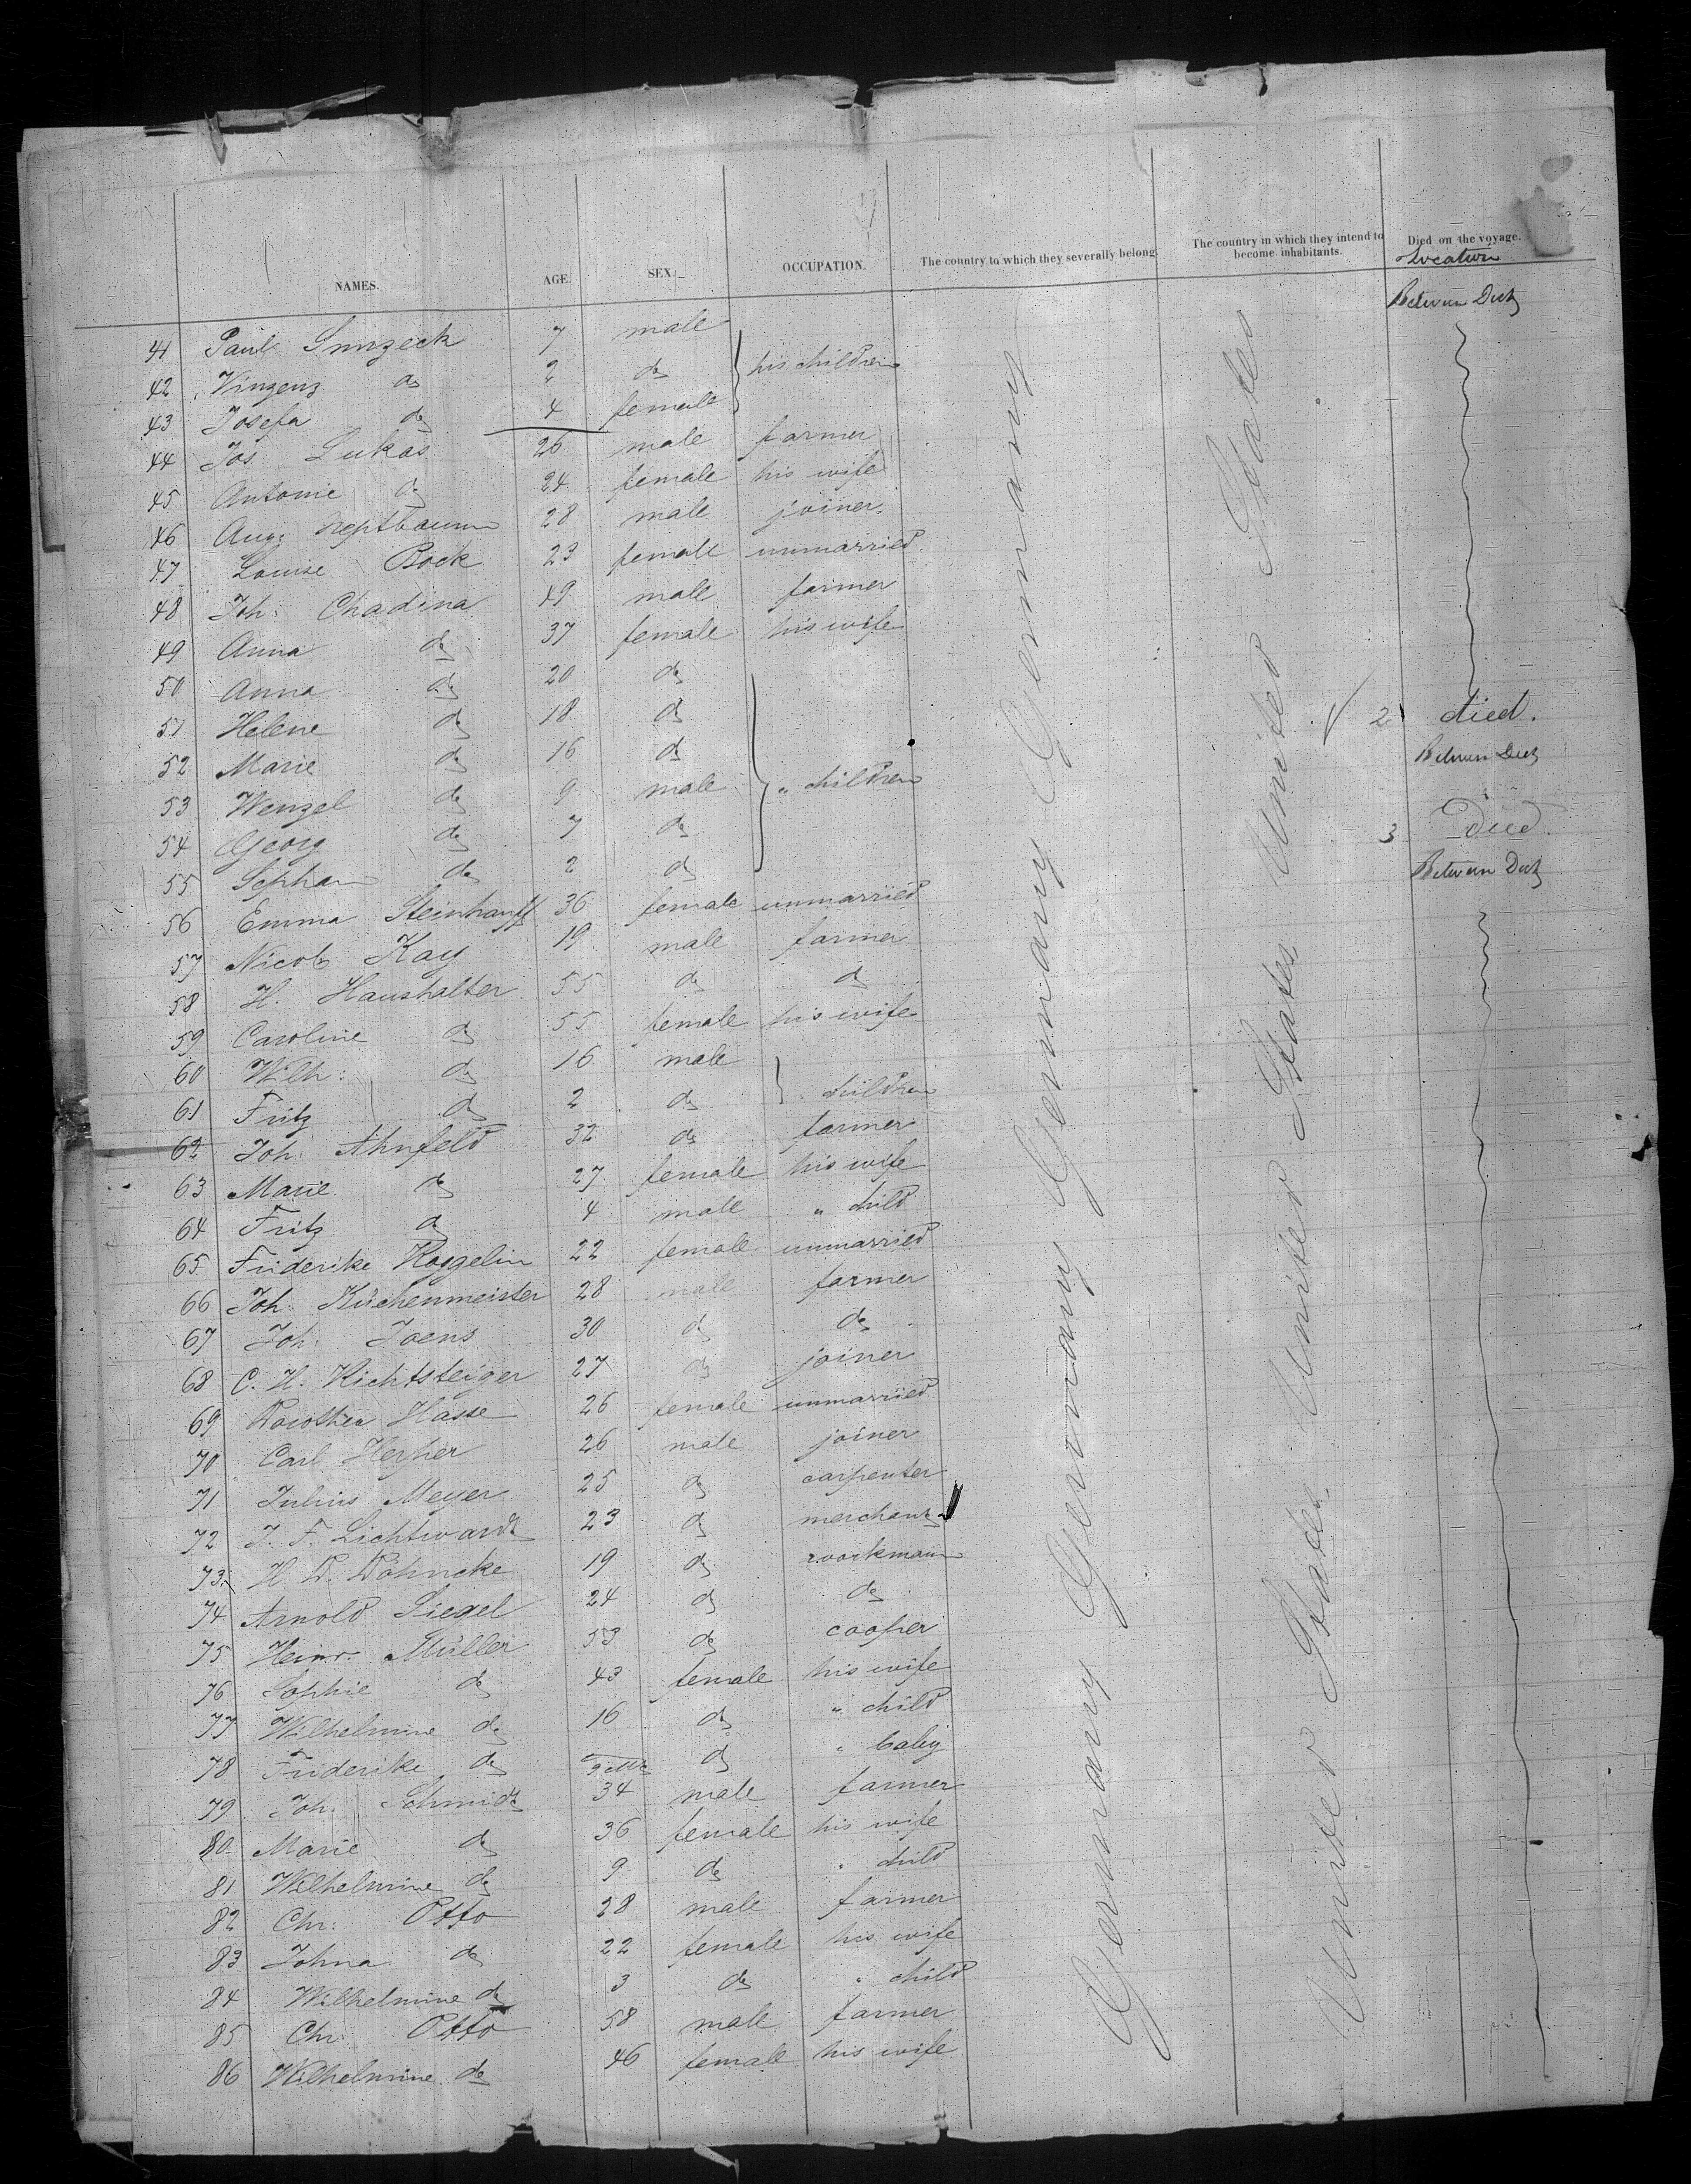 NAMES. AGE. SEX. OCCUPATION. The country to which they severally belong. The country in which they intend to become inhabitants. Died on the voyage.
Location
41 Paul Smrzeck 7 male Between Deck
42 Vinzenz do 2 do his children
43 Josefa do 4 female
44 Jos Lukas 26 male farmer
45 Antonie do 24 female his wife
46 Aug: 28 male joiner.
47 Louise Bock 23 female unmarried.
48 Joh: Chadina 49 male farmer
49 Anna do 37 female his wife
50 Anna do 20 do
51 Helene do 18 do 2 died.
52 Marie do 16 do Between Deck
53 Wenzel do 9 male " children
54 Georg do 7 do 3 Died.
55 Sephan do 2 do Between Deck
56 Emma Steinhauff 36 female unmarried
57 Nicol Kay 19 male farmer
58 H. Haushalter 55 do do
59 Caroline do 55 female his wife
60 Wilh: do 16 male
61 Fritz do 2 do children
62 Joh: Ahnfeld 32 do farmer
63 Marie do 27 female his wife
64 Fritz do 4 male " child
65 Friderike Roggelin 22 female unmarried
66 Joh: Küchenmeister 28 male farmer
67 Joh: Joens 30 do do
68 C. H. Richtsteiger 27 do joiner
69 Dorothea Hasse 26 female unmarried
70 Carl Herper 26 male joiner
71 Julius Meyer 25 do carpenter
72 J. F. Lichtwardt 23 do merchant
73. H. D. Döhncke 19 do workmann
74 Arnold Siegel 24 do do
75 Heinr. Müller 53 do cooper
76 Sophie do 43 female his wife
77 Wilhelmine do 16 do " child
78 Friderike do 9 Mts do " baby
79 Joh. Schmidt 34 male farmer
80 Marie do 36 female his wife
81 Wilhelmine do 9 do " child
82 Chr: Otto 28 male farmer
83 Johna do 22 female his wife
84 Wilhelmine do 3 do " child
85 Chr: Otto 58 male farmer
86 Wilhelmine do 46 female his wife
Germany Germany Germany Germany Germany
United States United States United States